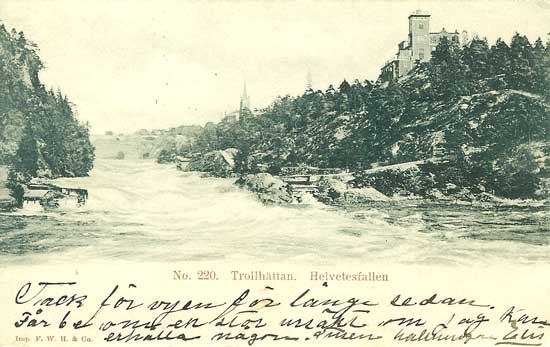 No. 220. Trollhättan. Helvetesfallen
Tack för vyen för länge sedan.
Får be om en stor ursäkt om jag kan
erhålla någon.
Imp. F. W. H. & Co.